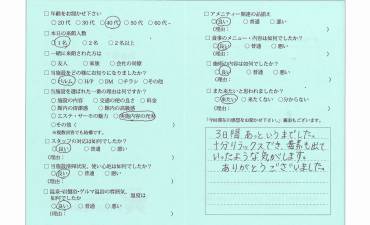 □ 年齢をお聞かせ下さい
○20代 ○30代 ○40代 ○50代 ○60代~
□ 本日の来館人数
○1名 ○2名 ○2名以上
□ 一緒に来館された方は
○友人 ○家族 ○会社の同僚
□ 当施設をどの様にお知りになりましたか？
○HP ○DM ○チラシ ○その他
□ 当施設を選ばれた一番の理由は何ですか？
○施設の内容 ○交通の便の良さ ○料金
○館内の清潔感 ○館内の高級感
○エステ・サーキの魅力
○その他（ ）
※複数回答でも結構です。
□ スタッフの対応は如何でしたか？
○良い ○普通 ○悪い
(理由： )
□ 当施設の清掃状況、使い心地は如何でしたか？
○良い ○普通 ○悪い
(理由： )
如何でしたか
○良い ○普通 ○悪い
(理由： )
□ アメニティー関連の品揃え
○良い ○普通 ○悪い
(理由： )
□ お食事のメニュー・内容は如何でしたか？
○良い ○普通 ○悪い
(理由： )
○良い ○普通 ○悪い
(理由： )
□ また来たいと思われましたか？
○来たい ○来たくない ○分からない
(理由： )
3日間 あっというまでした。
十分リラックスでき、毒素も出て
いったような気がします。
ありがとうございました。